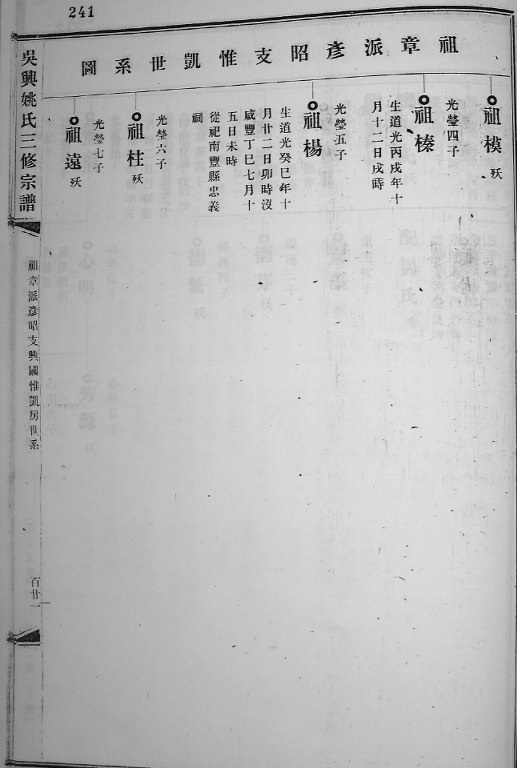 241
祖章派彥昭支惟凱世系圖
祖模 殀
光瑩四子
祖榛
生道光丙戌年十
月十二日戌時
光瑩五子
祖楊
生道光癸巳年十
月廿二日卯時沒
咸豐丁巳七月十
五日未時
從祀南豐縣忠義
祠
光瑩六子
祖柱 殀
光瑩七子
祖遠 殀
吳興姚氏三修宗譜
祖章派彥昭支興國惟凱房世系
百廿一